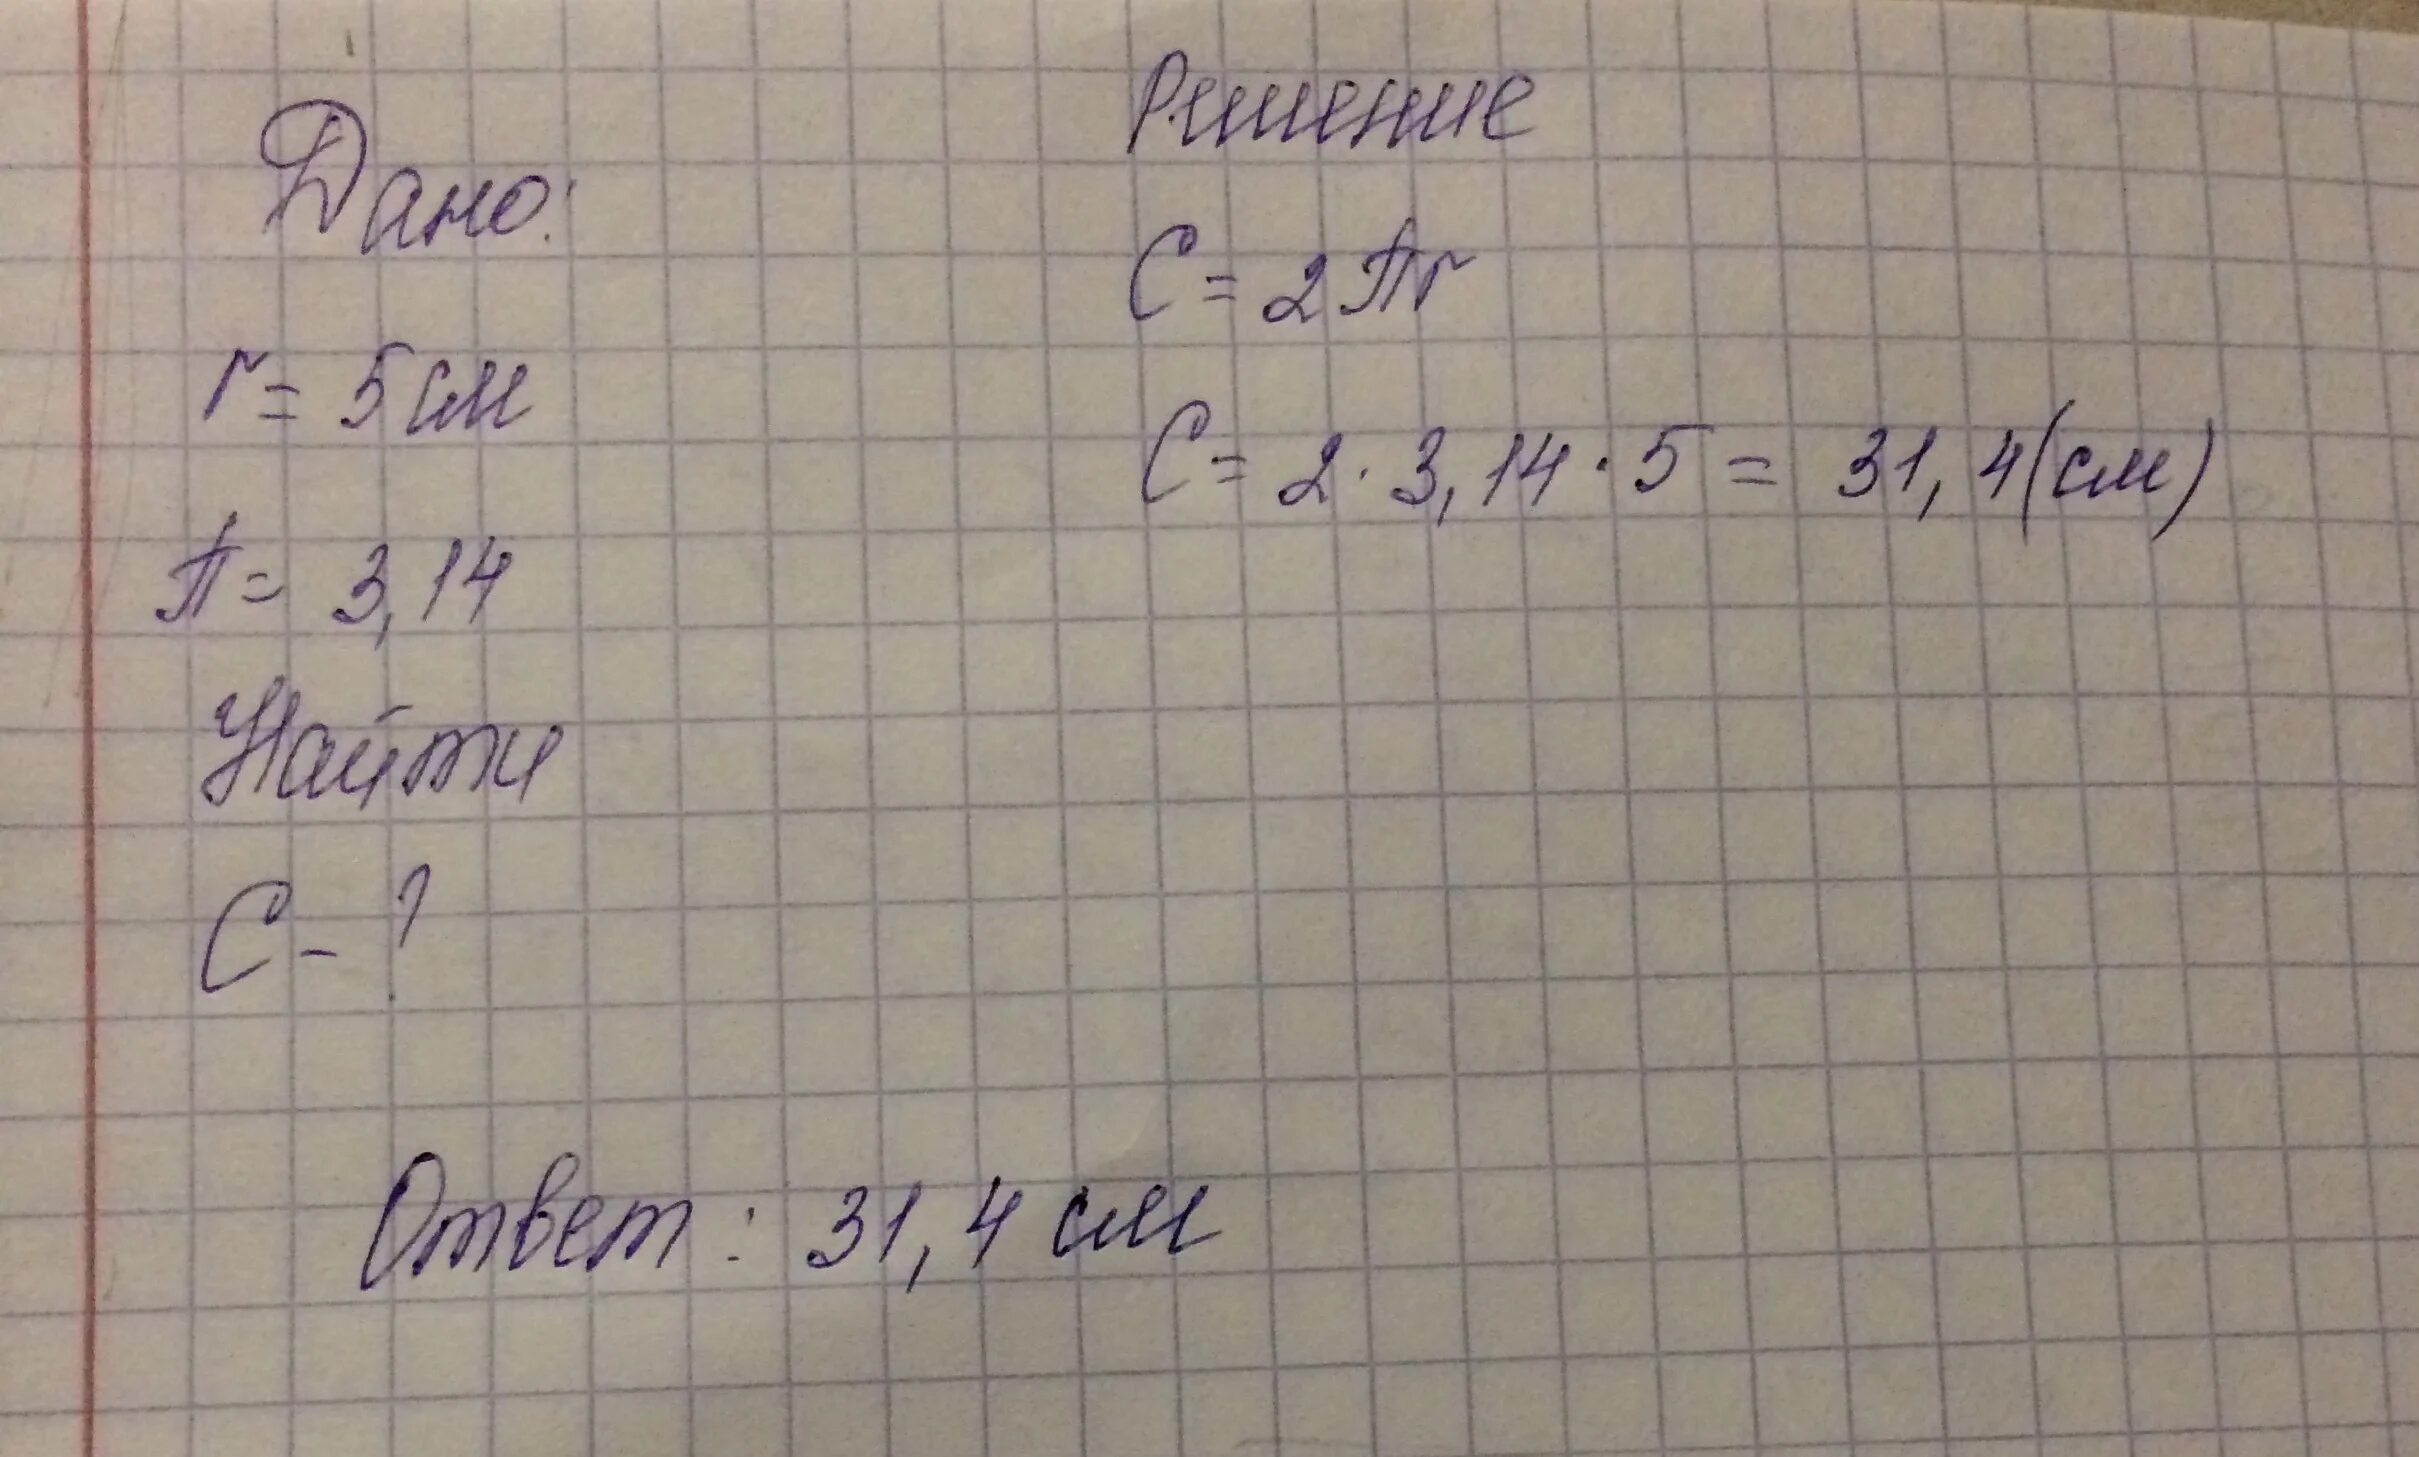 Дано:
r = 5 см
П = 3,14
Найти
C - ?
Решение
C = 2Пr
C = 2 · 3,14 · 5 = 31,4 (см)
Ответ : 31,4 см